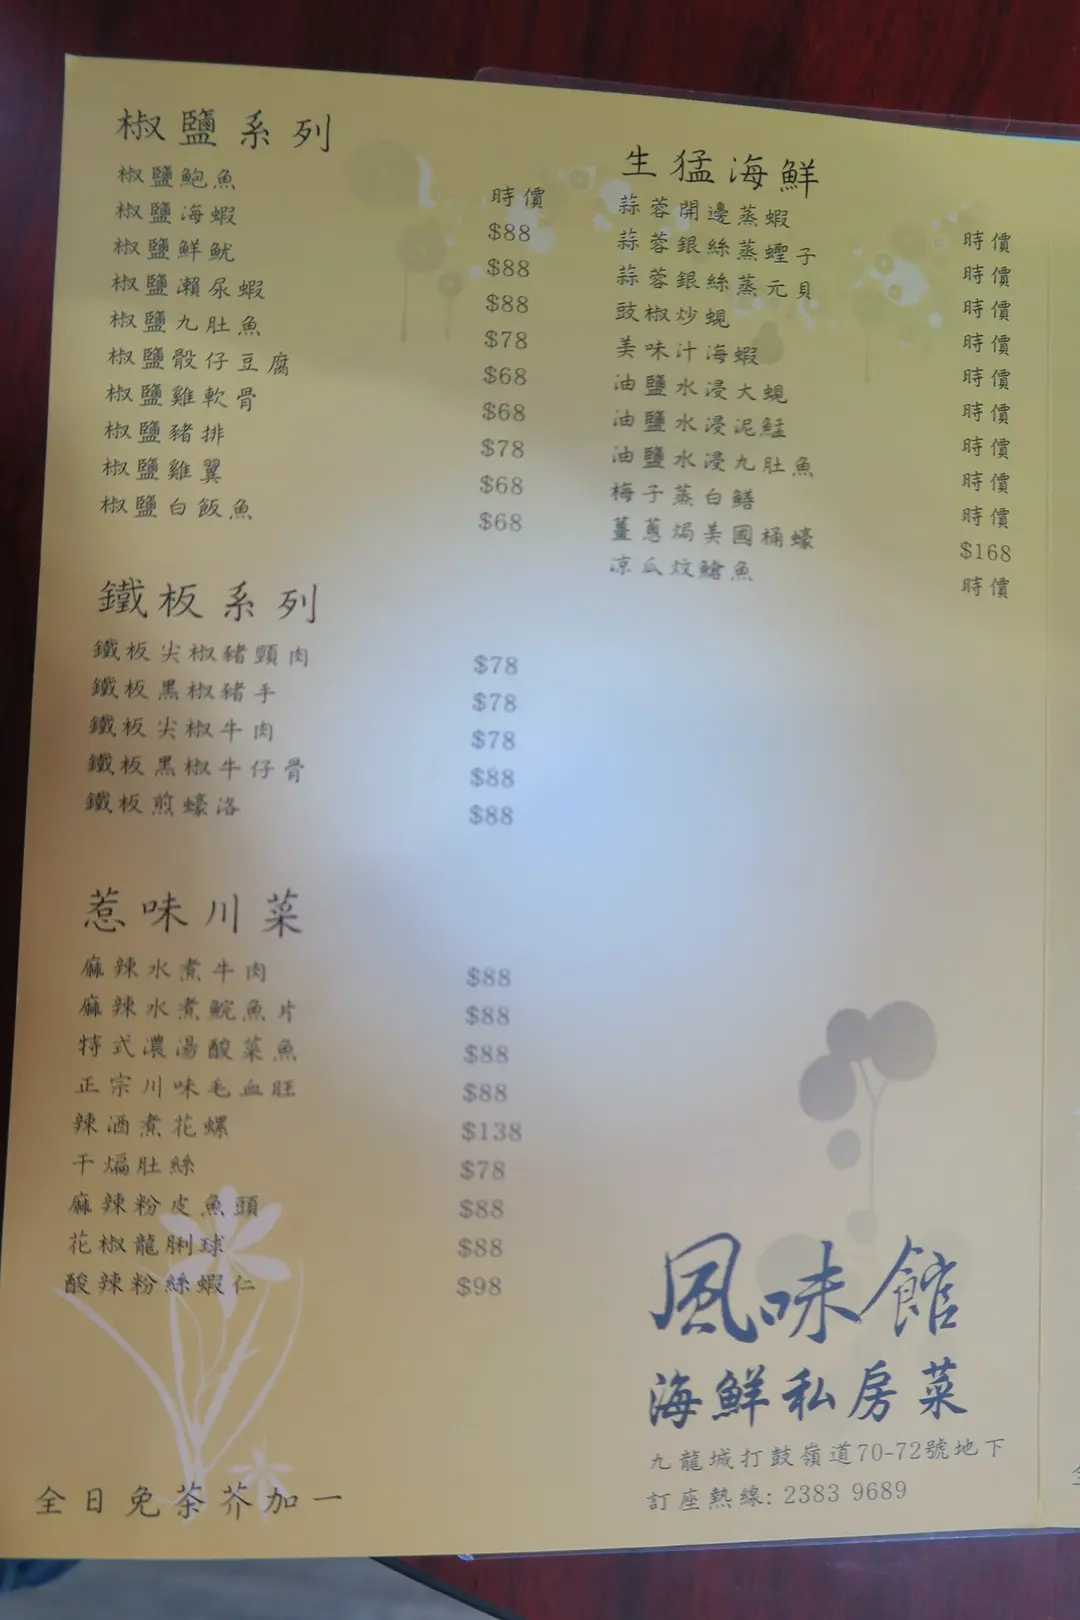 椒鹽系列
椒鹽鮑魚 時價
椒鹽海蝦 $88
椒鹽鮮魷 $88
椒鹽瀨尿蝦 $88
椒鹽九肚魚 $78
椒鹽骰仔豆腐 $68
椒鹽雞軟骨 $68
椒鹽豬排 $78
椒鹽雞翼 $68
椒鹽白飯魚 $68
鐵板系列
鐵板尖椒豬頸肉 $78
鐵板黑椒豬手 $78
鐵板尖椒牛肉 $78
鐵板黑椒牛仔骨 $88
鐵板煎蠔洛 $88
惹味川菜
麻辣水煮牛肉 $88
麻辣水煮鯇魚片 $88
特式濃湯酸菜魚 $88
正宗川味毛血旺 $88
辣酒煮花螺 $138
干煸肚絲 $78
麻辣粉皮魚頭 $88
花椒龍脷球 $88
酸辣粉絲蝦仁 $98
全日免茶芥加一
生猛海鮮
蒜蓉開邊蒸蝦 時價
蒜蓉銀絲蒸蟶子 時價
蒜蓉銀絲蒸元貝 時價
豉椒炒蜆 時價
美味汁海蝦 時價
油鹽水浸大蜆 時價
油鹽水浸泥鯭 時價
油鹽水浸九肚魚 時價
梅子蒸白鱔 時價
薑蔥焗美國桶蠔 $168
凉瓜炆鱠魚 時價
風味館
海鮮私房菜
九龍城打鼓嶺道70-72號地下
訂座熱線: 2383 9689